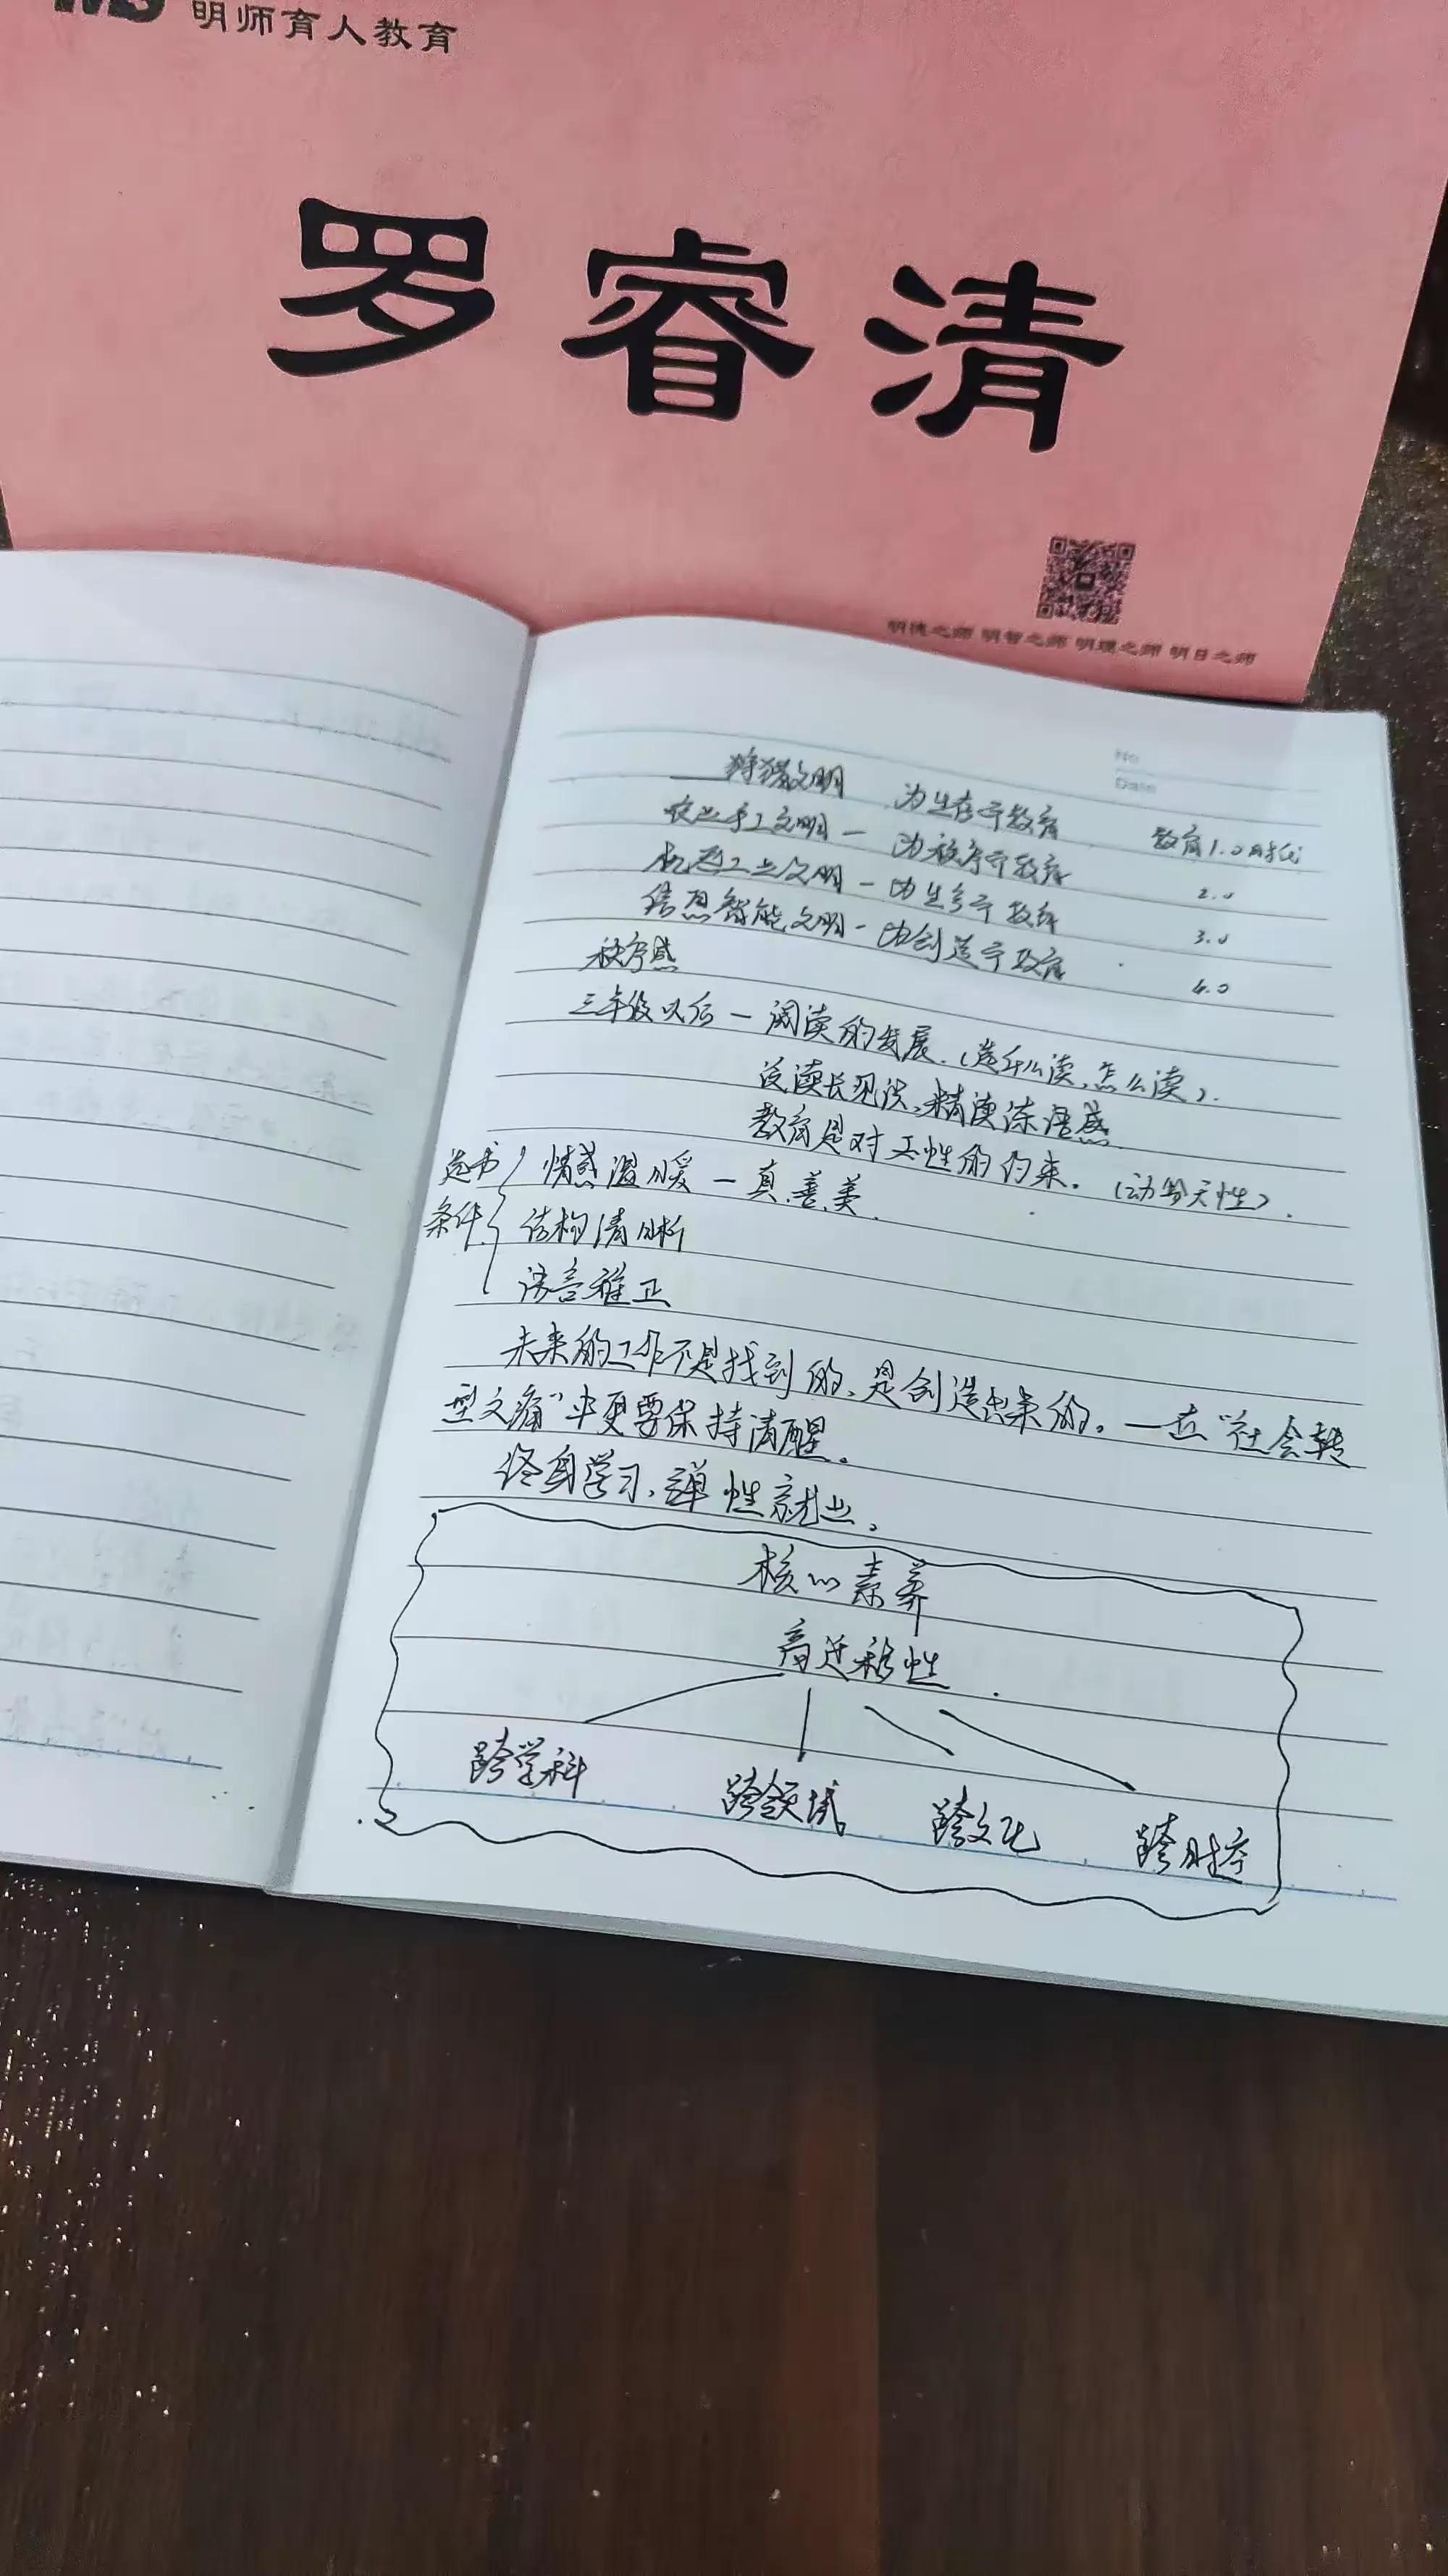 明师育人教育
罗睿清
明德之师 明智之师 明理之师 明日之师
No
Date
狩猎文明 为生存而教育 教育1.0时代
农业手工文明一 为秩序而教育 2.0
机器工业文明一为生产而教育 3.0
信息智能文明-为创造而教育 4.0
秩序感
三年级以后一阅读的发展.(选什么读,怎么读).
泛读长见识,精读练语感
教育是对天性的约束. (动物天性).
选书 情感温暖一真.善.美.
条件 结构清晰
语言雅正
未来的工作不是找到的、是创造出来的。一在“社会转
型之痛”中更要保持清醒。
终身学习、弹性就业。
核心素养
高迁移性
跨学科 跨领域 跨文化 跨时空